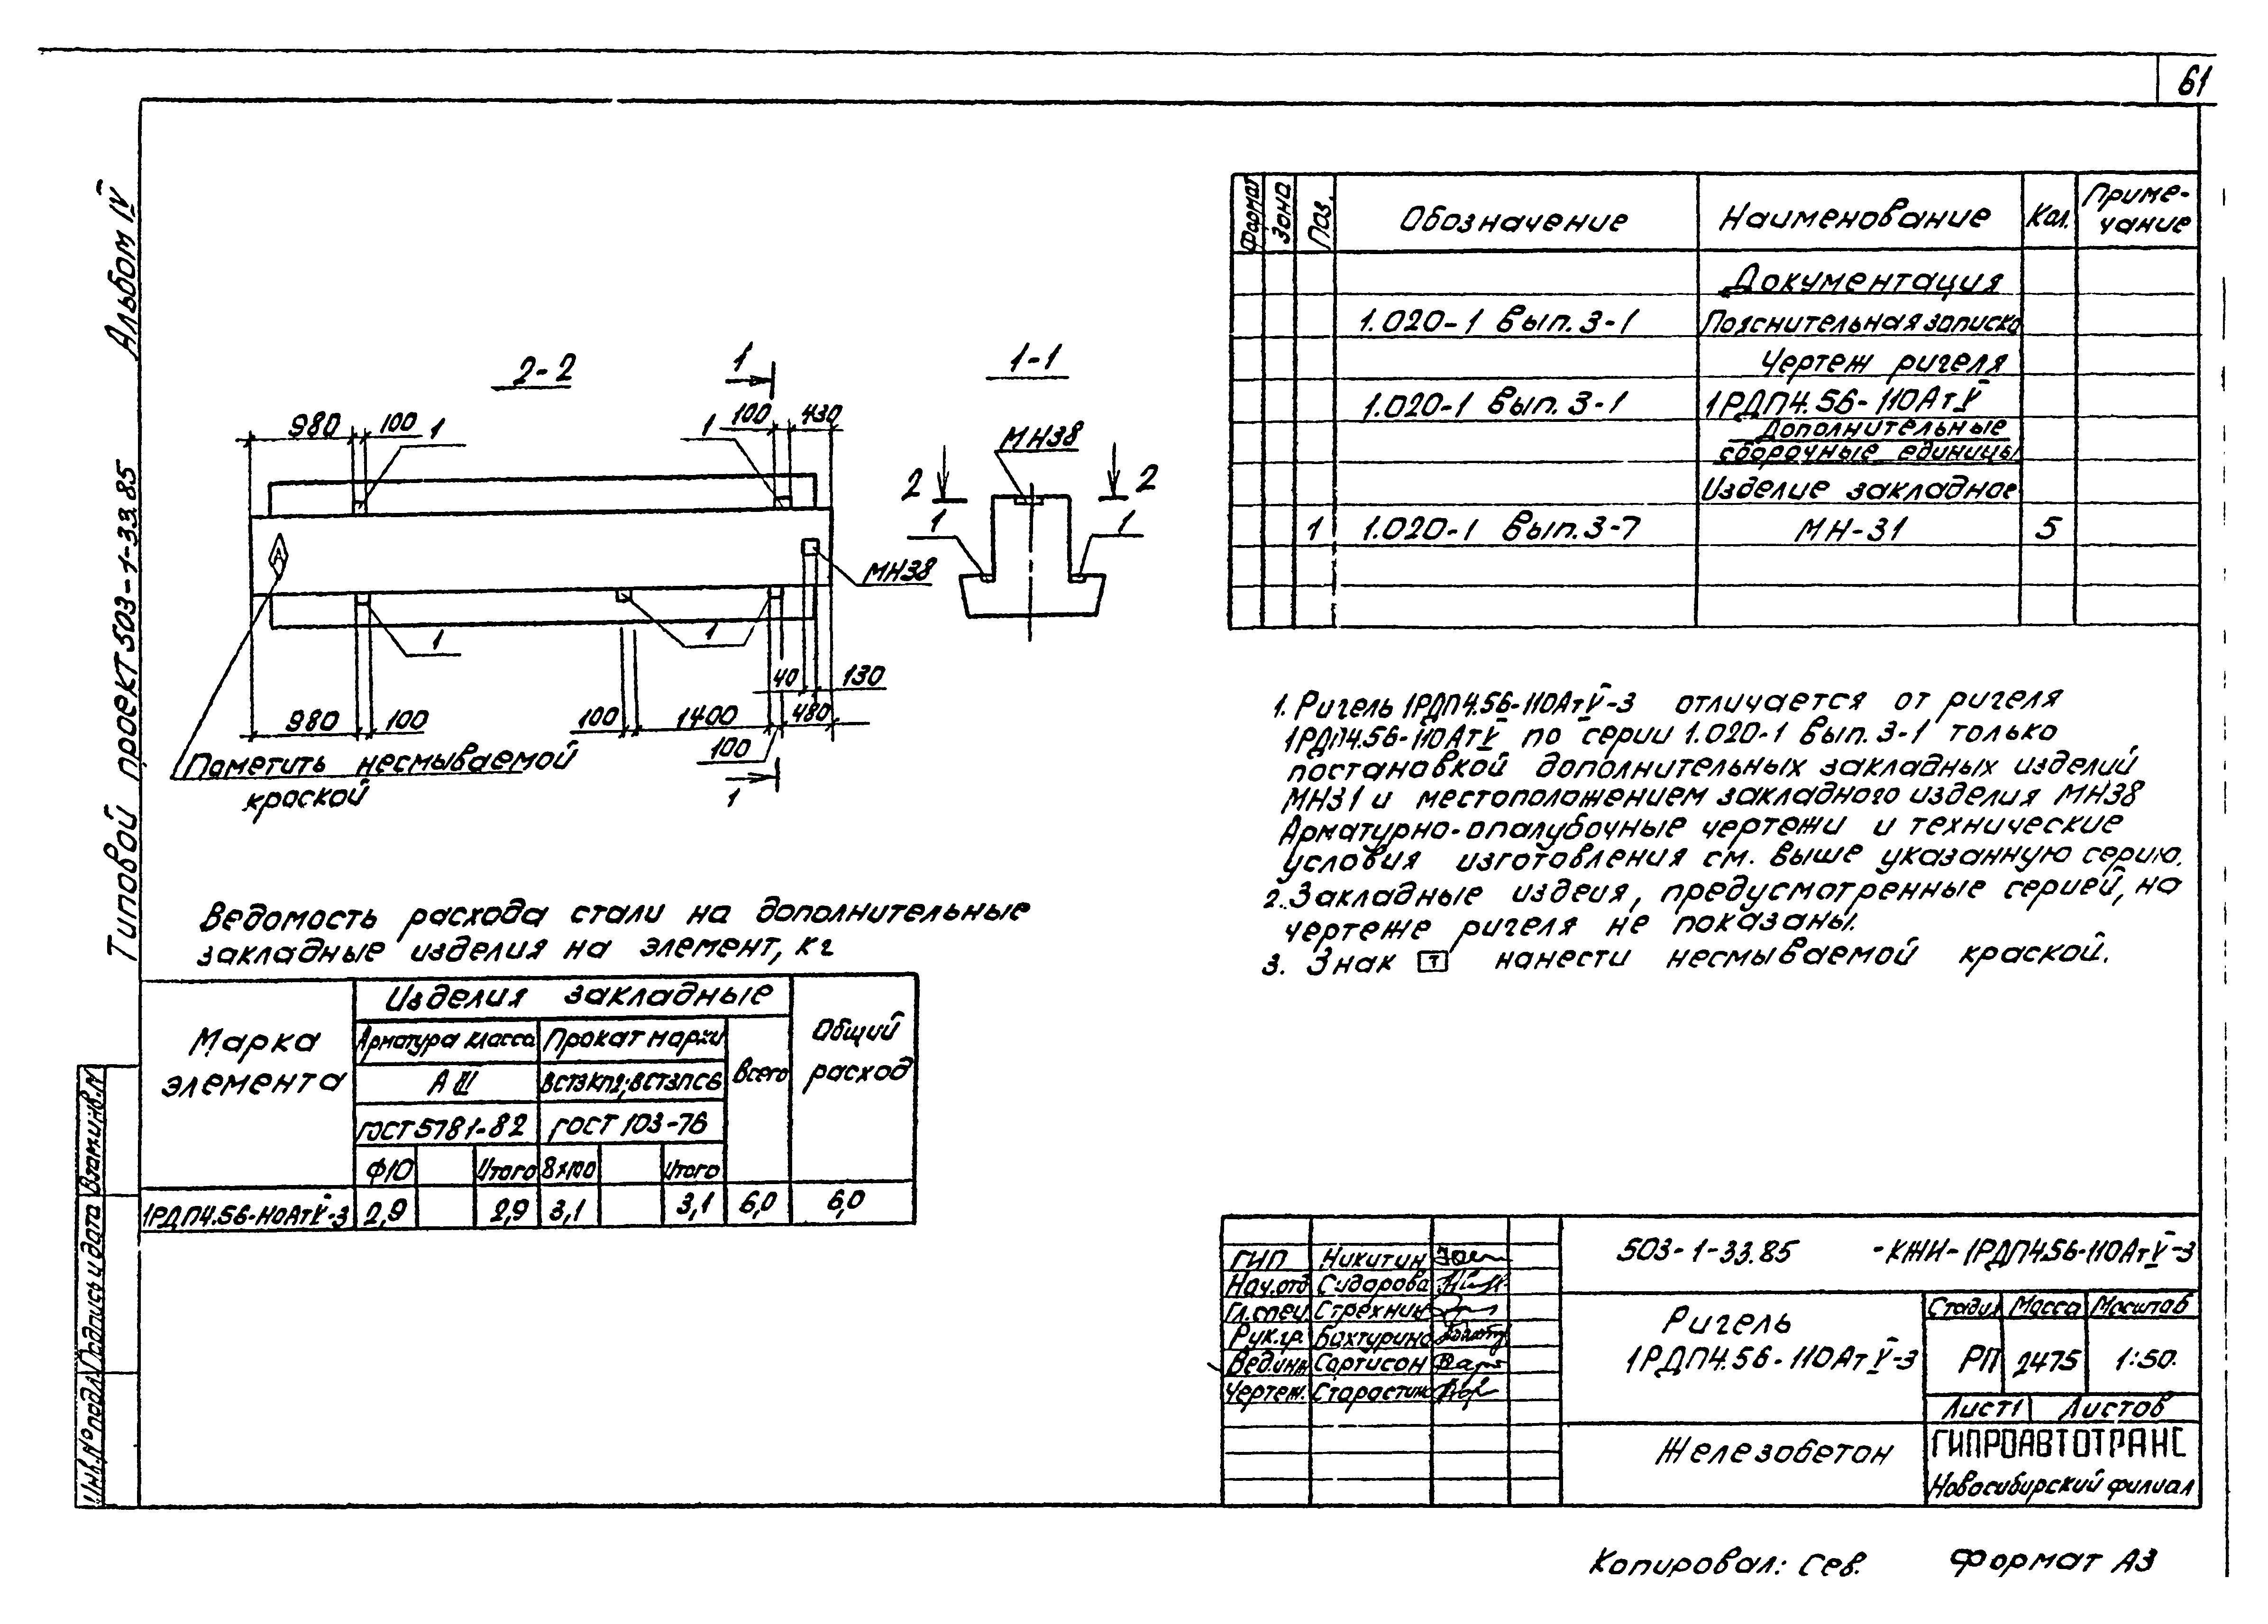 61
Альбом IV
Типовой проект 503-1-33.85
Взам.инв.N
Подпись и дата
Инв.№ подл.
2-2
1
1-1
980 100 1
1 100 430
МН38
2 2
1 1
А
МН38
1 1
40 130
980 100 100 1400 480
100
1
Пометить несмываемой
краской
Формат Зона Поз. Обозначение Наименование Кол. Приме-
чание
Документация
1.020-1 вып.3-1 Пояснительная записка
Чертеж ригеля
1.020-1 вып.3-1 1РДП4.56-110АтV
Дополнительные
сборочные единицы
Изделие закладное
1 1.020-1 вып.3-7 МН-31 5
1. Ригель 1РДП4.56-110АтV-3 отличается от ригеля
1РДП4.56-110АтV по серии 1.020-1 вып.3-1 только
постановкой дополнительных закладных изделий
МН31 и местоположением закладного изделия МН38
Арматурно-опалубочные чертежи и технические
условия изготовления см. выше указанную серию.
2. Закладные издеия, предусмотренные серией, на
чертеже ригеля не показаны.
3. Знак Т нанести несмываемой краской.
Ведомость расхода стали на дополнительные
закладные изделия на элемент, кг
Марка
элемента
Изделия закладные
Общий
расход
Арматура класса Прокат марки Всего
А III ВСТ3КП2;ВСТ3ПС6
ГОСТ 5781-82 ГОСТ 103-76
Ф10 Итого 8х100 Итого
1РДП4.56-110АтV-3 2,9 2,9 3,1 3,1 6,0 6,0
ГИП Никитин
Нач.отд Сидорова
Гл.спец. Стрехнин
Рук.гр. Бахтурина
Вед.инж Сартисон
Чертеж. Старастина
503-1-33.85 -КЖИ-1РДП4.56-110АтV-3
Ригель
1РДП4.56-110АтV-3
Стадия Масса Масштаб
РП 2475 1:50.
Лист 1 Листов
Железобетон
ГИПРОАВТОТРАНС
Новосибирский филиал
Копировал: Сев. Формат А3